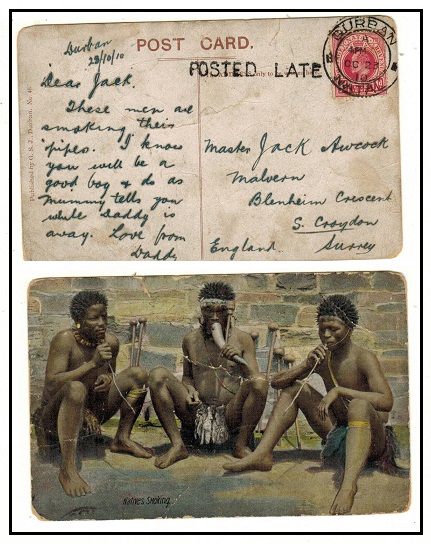 POST CARD.
POSTED LATE
DURBAN
NATAL
Durban
23/10/10
Dear Jack.
These men are
smoking their
pipes. I know
you will be a
good boy & do as
Mummy tells you
while Daddy is
away. Love from
Daddy
Master Jack Awcock
Malvern
Blenheim Crescent
S. Croydon
England. Surrey
Natives Smoking.